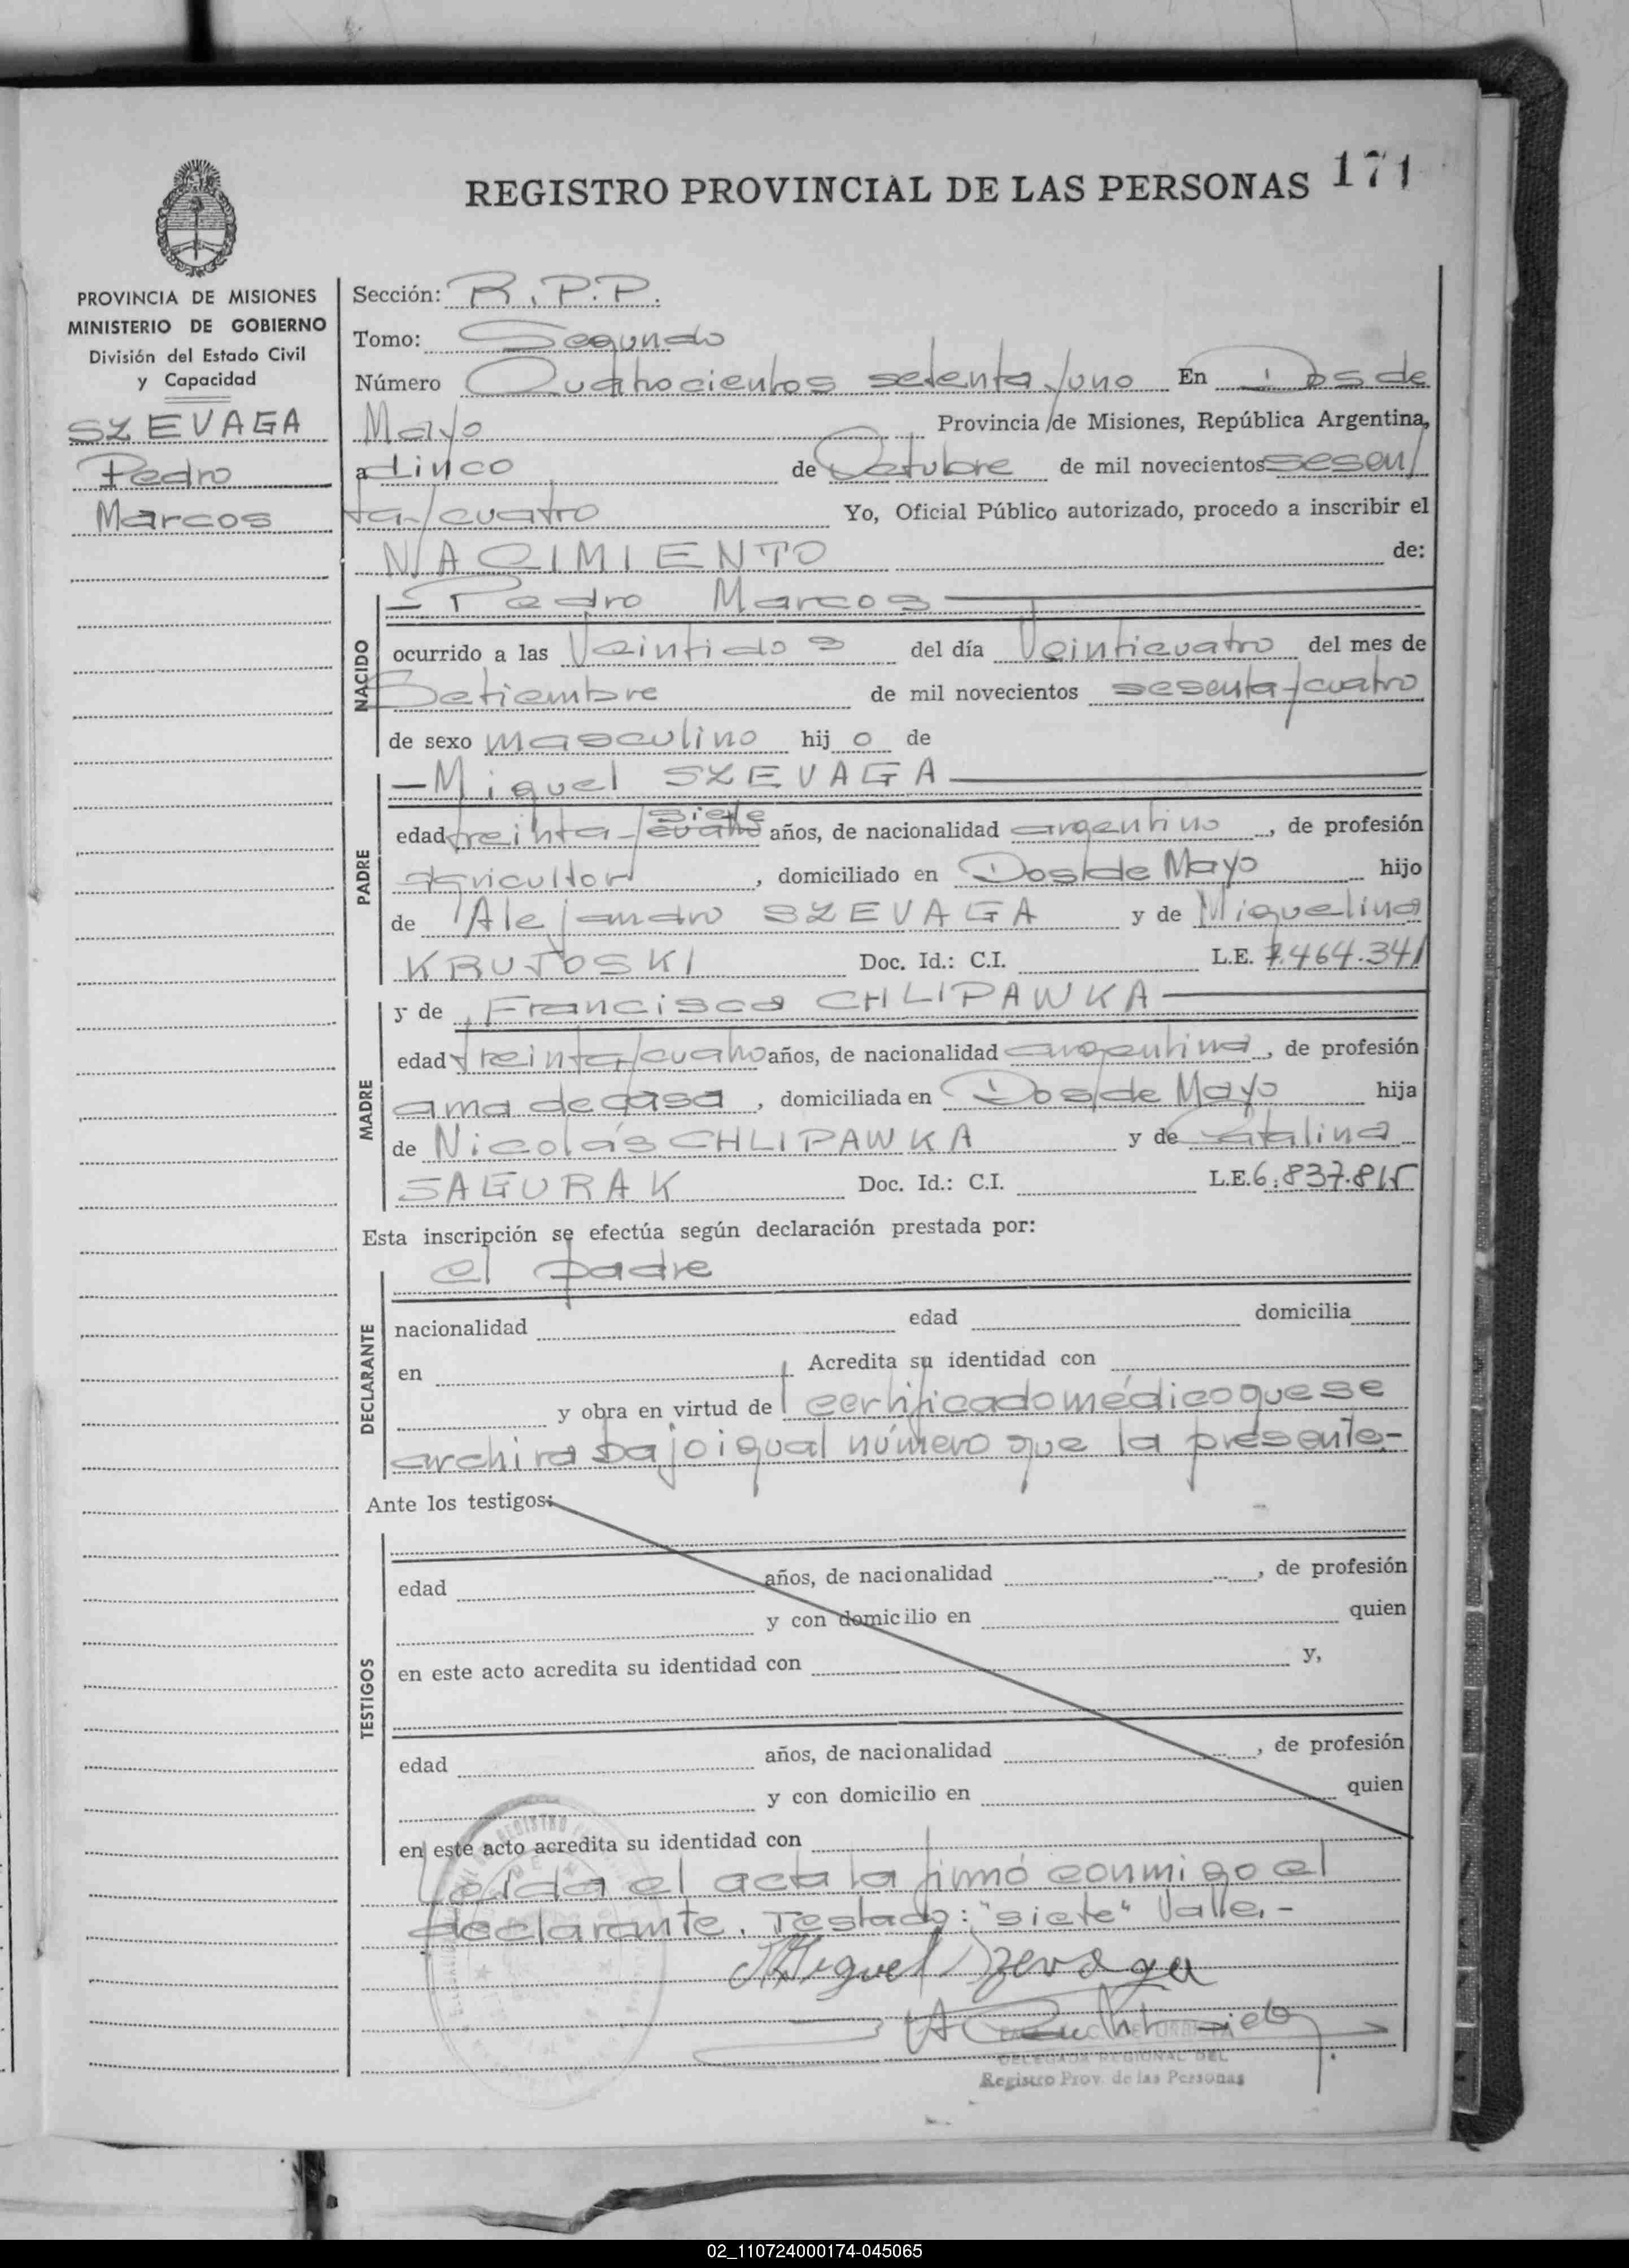 REGISTRO PROVINCIAL DE LAS PERSONAS 171
PROVINCIA DE MISIONES
MINISTERIO DE GOBIERNO
División del Estado Civil
y Capacidad
SZEVAGA
Pedro
Marcos
Sección: R.P.P.
Tomo: Segundo
Número Cuatrocientos setenta/uno En Dos de
Mayo Provincia de Misiones, República Argentina,
a Cinco de Octubre de mil novecientos sesen/
ta/cuatro Yo, Oficial Público autorizado, procedo a inscribir el
NACIMIENTO de:
NACIDO
— Pedro Marcos —
ocurrido a las Veintidos del día Veinticuatro del mes de
Setiembre de mil novecientos sesenta/cuatro
de sexo masculino hij o de
PADRE
— Miguel SZEVAGA —
siete
edad treinta/cuatro años, de nacionalidad argentino, de profesión
agricultor, domiciliado en Dos/de Mayo hijo
de Alejandro SZEVAGA y de Miguelina
KRUJOSKI Doc. Id.: C.I. L.E. 7.464.341
MADRE
y de Francisca CHLIPAWKA —
edad treinta/cuatro años, de nacionalidad argentina, de profesión
ama de casa, domiciliada en Dos/de Mayo hija
de Nicolás CHLIPAWKA y de Catalina
SAGURAK Doc. Id.: C.I. L.E. 6.837.815
Esta inscripción se efectúa según declaración prestada por:
DECLARANTE
el padre
nacionalidad edad domicilia
en Acredita su identidad con
y obra en virtud de certificado médico que se
archiva bajo igual número que la presente.-
Ante los testigos:
TESTIGOS
edad años, de nacionalidad , de profesión
y con domicilio en quien
en este acto acredita su identidad con y,
edad años, de nacionalidad , de profesión
y con domicilio en quien
en este acto acredita su identidad con
Leída el acta la firmó conmigo el
declarante. Testado: "siete" Valle.-
Miguel Szevaga
DELEGADA REGIONAL DEL
Registro Prov. de las Personas
02_110724000174-045065